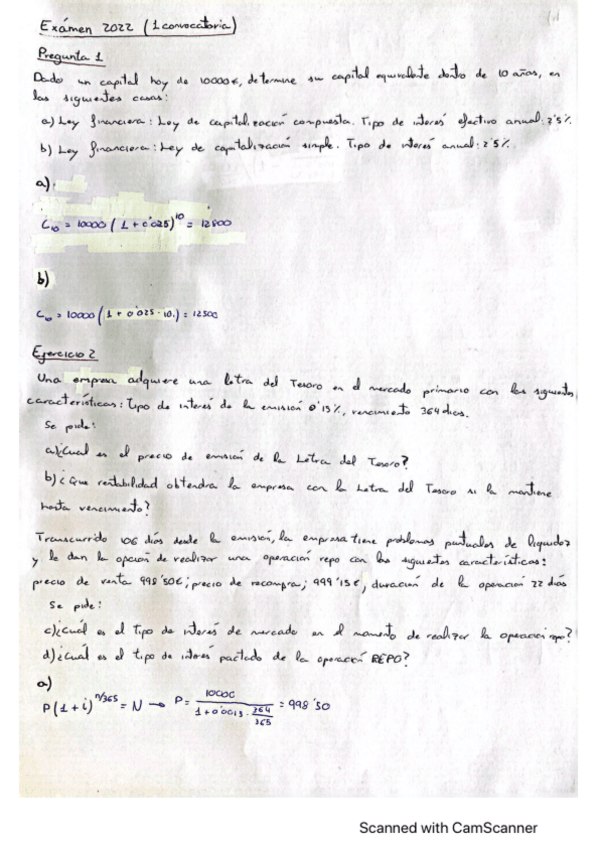 Exámen 2022 (1 convocatoria)
Pregunta 1
Dado un capital hoy de 10000€, determine su capital equivalente dentro de 10 años, en
los siguientes casos:
a) Ley financiera: Ley de capitalización compuesta. Tipo de interés efectivo anual: 2'5%
b) Ley financiera: Ley de capitalización simple. Tipo de interés anual: 2'5%.
a)
C10 = 10000 (1 + 0'025)^10 = 12800
b)
C10 = 10000 (1 + 0'025 · 10.) = 12500
Ejercicio 2
Una empresa adquiere una letra del Tesoro en el mercado primario con las siguientes
características: Tipo de interés de la emisión 0'15%, vencimiento 364 días.
Se pide:
a) ¿Cual es el precio de emisión de la Letra del Tesoro?
b) ¿Que rentabilidad obtendra la empresa con la Letra del Tesoro si la mantiene
hasta vencimiento?
Transcurrido 106 días desde la emisión, la empresa tiene problemas puntuales de liquidez
y le dan la opción de realizar una operación repo con las siguientes características:
precio de venta 998'50€; precio de recompra; 999'15€, duración de la operación 22 días
Se pide:
c) ¿Cuál es el Tipo de interés de mercado en el momento de realizar la operación repo?
d) ¿Cuál es el tipo de interés pactado de la operación REPO?
a)
P(1 + i)^n/365 = N → P = 1000€ / 1 + 0'0015 · 364/365 = 998'50
Scanned with CamScanner